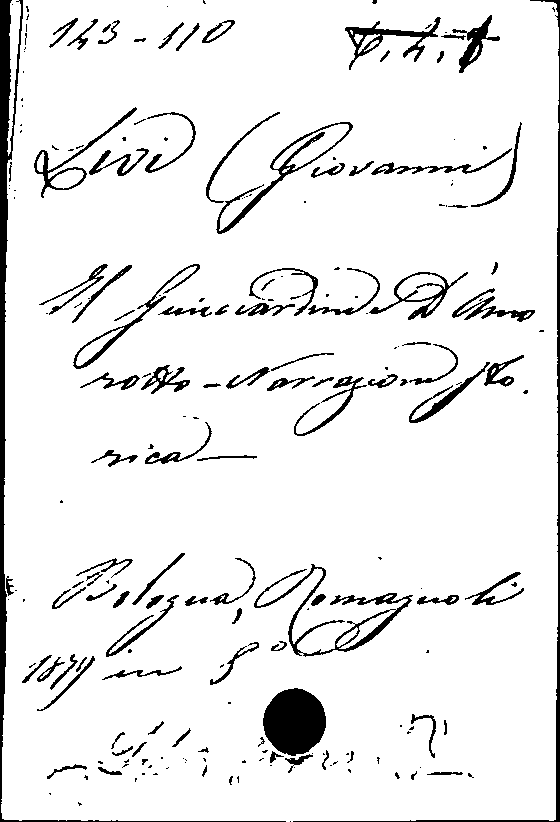 123-110
Livi (Giovanni)
Il Guicciardini e D. Amo
rotto - Narrazione Sto.
rica —
Bologna, Romagnoli
1879 in 8°